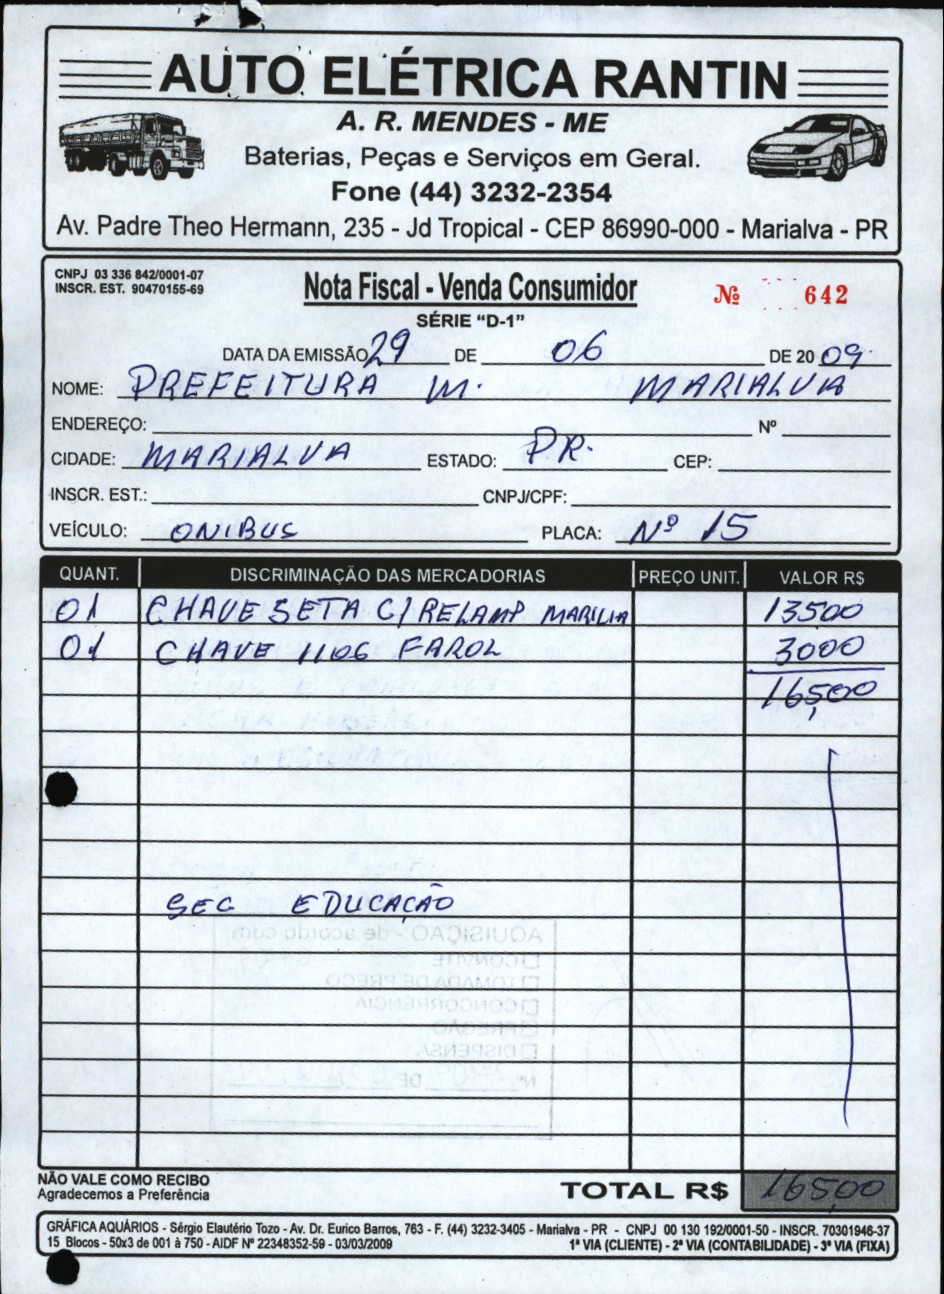 AUTO ELÉTRICA RANTIN
A. R. MENDES - ME
Baterias, Peças e Serviços em Geral.
Fone (44) 3232-2354
Av. Padre Theo Hermann, 235 - Jd Tropical - CEP 86990-000 - Marialva - PR
CNPJ 03 336 842/0001-07
INSCR. EST. 90470155-69
Nota Fiscal - Venda Consumidor
Nº 642
SÉRIE "D-1"
DATA DA EMISSÃO 29 DE 06 DE 2009
NOME: PREFEITURA M. MARIALVA
ENDEREÇO: Nº
CIDADE: MARIALVA ESTADO: PR. CEP:
INSCR. EST.: CNPJ/CPF:
VEÍCULO: ONIBUS PLACA: Nº 15
QUANT. DISCRIMINAÇÃO DAS MERCADORIAS PREÇO UNIT. VALOR R$
01 CHAVE SETA C/RELAMP MARILIA 13500
01 CHAVE 1106 FAROL 3000
165,00
SEC EDUCAÇÃO
AQUISIÇÃO - de acordo com
CONVITE
TOMADA DE PREÇO
CONCORRÊNCIA
PREGÃO
DISPENSA
Nº DE
NÃO VALE COMO RECIBO
Agradecemos a Preferência
TOTAL R$ 165,00
GRÁFICA AQUÁRIOS - Sérgio Elautério Tozo - Av. Dr. Eurico Barros, 763 - F. (44) 3232-3405 - Marialva - PR - CNPJ 00 130 192/0001-50 - INSCR. 70301946-37
15 Blocos - 50x3 de 001 à 750 - AIDF Nº 22348352-59 - 03/03/2009 1ª VIA (CLIENTE) - 2ª VIA (CONTABILIDADE) - 3ª VIA (FIXA)